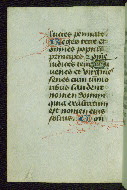 lucres pennate
Reges terre et
omnes populi
principes et omnes
iudices terre
uenes et virgines
senes cum iunio
ribus laudent
nomen domini
quia exaltatum
est nomen eius
solius